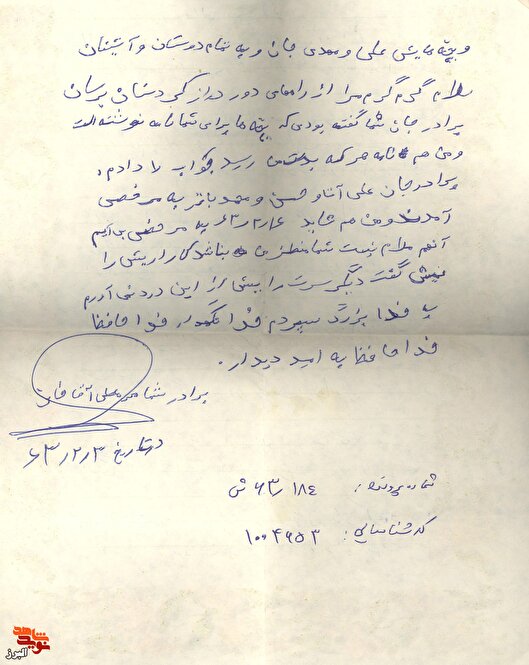 و بچه هایش علی و مهدی جان و به تمام دوستان و آشنایان
سلام گرم گرم مرا از راههای دور دراز کردستان برسان
برادر جان شما گفته بودی که بچه ها برای شما نامه نوشته اند
و من هم نامه هر که بدستم رسید جواب را دادم.
برادر جان علی آقا و حسن و محمد باقر به مرخصی
آمدند و من هم شاید ۶۳/۲/۶ به مرخصی بی آیم
آنهم معلوم نیست شما منتظر ما نباشد کارایش را
نمیش گفت دیگر سرت را بیش از این درد نمی آورم
به خدا بزرگ سپردم خدا نگهدار خدا حافظ
خدا حافظ به امید دیدار.
برادر شما علی آقا
در تاریخ ۶۳/۲/۳
شماره پرونده: ۱۸۴/۶۳ ش
کد شناسایی: ۱۰۰۴۶۵۳
شاهد
نوید
البرز